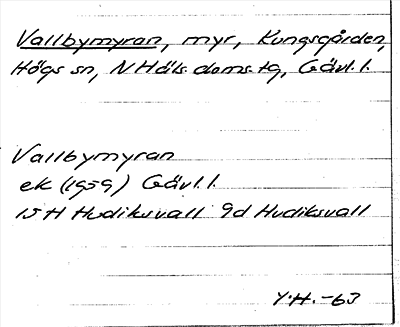 Vallbymyran, myr, Kungsgården,
Högs sn, N Häls. doms. tg, Gävl. l.
Vallbymyran
ek (1959) Gävl. l.
15H Hudiksvall 9d Hudiksvall
Y.H.-63